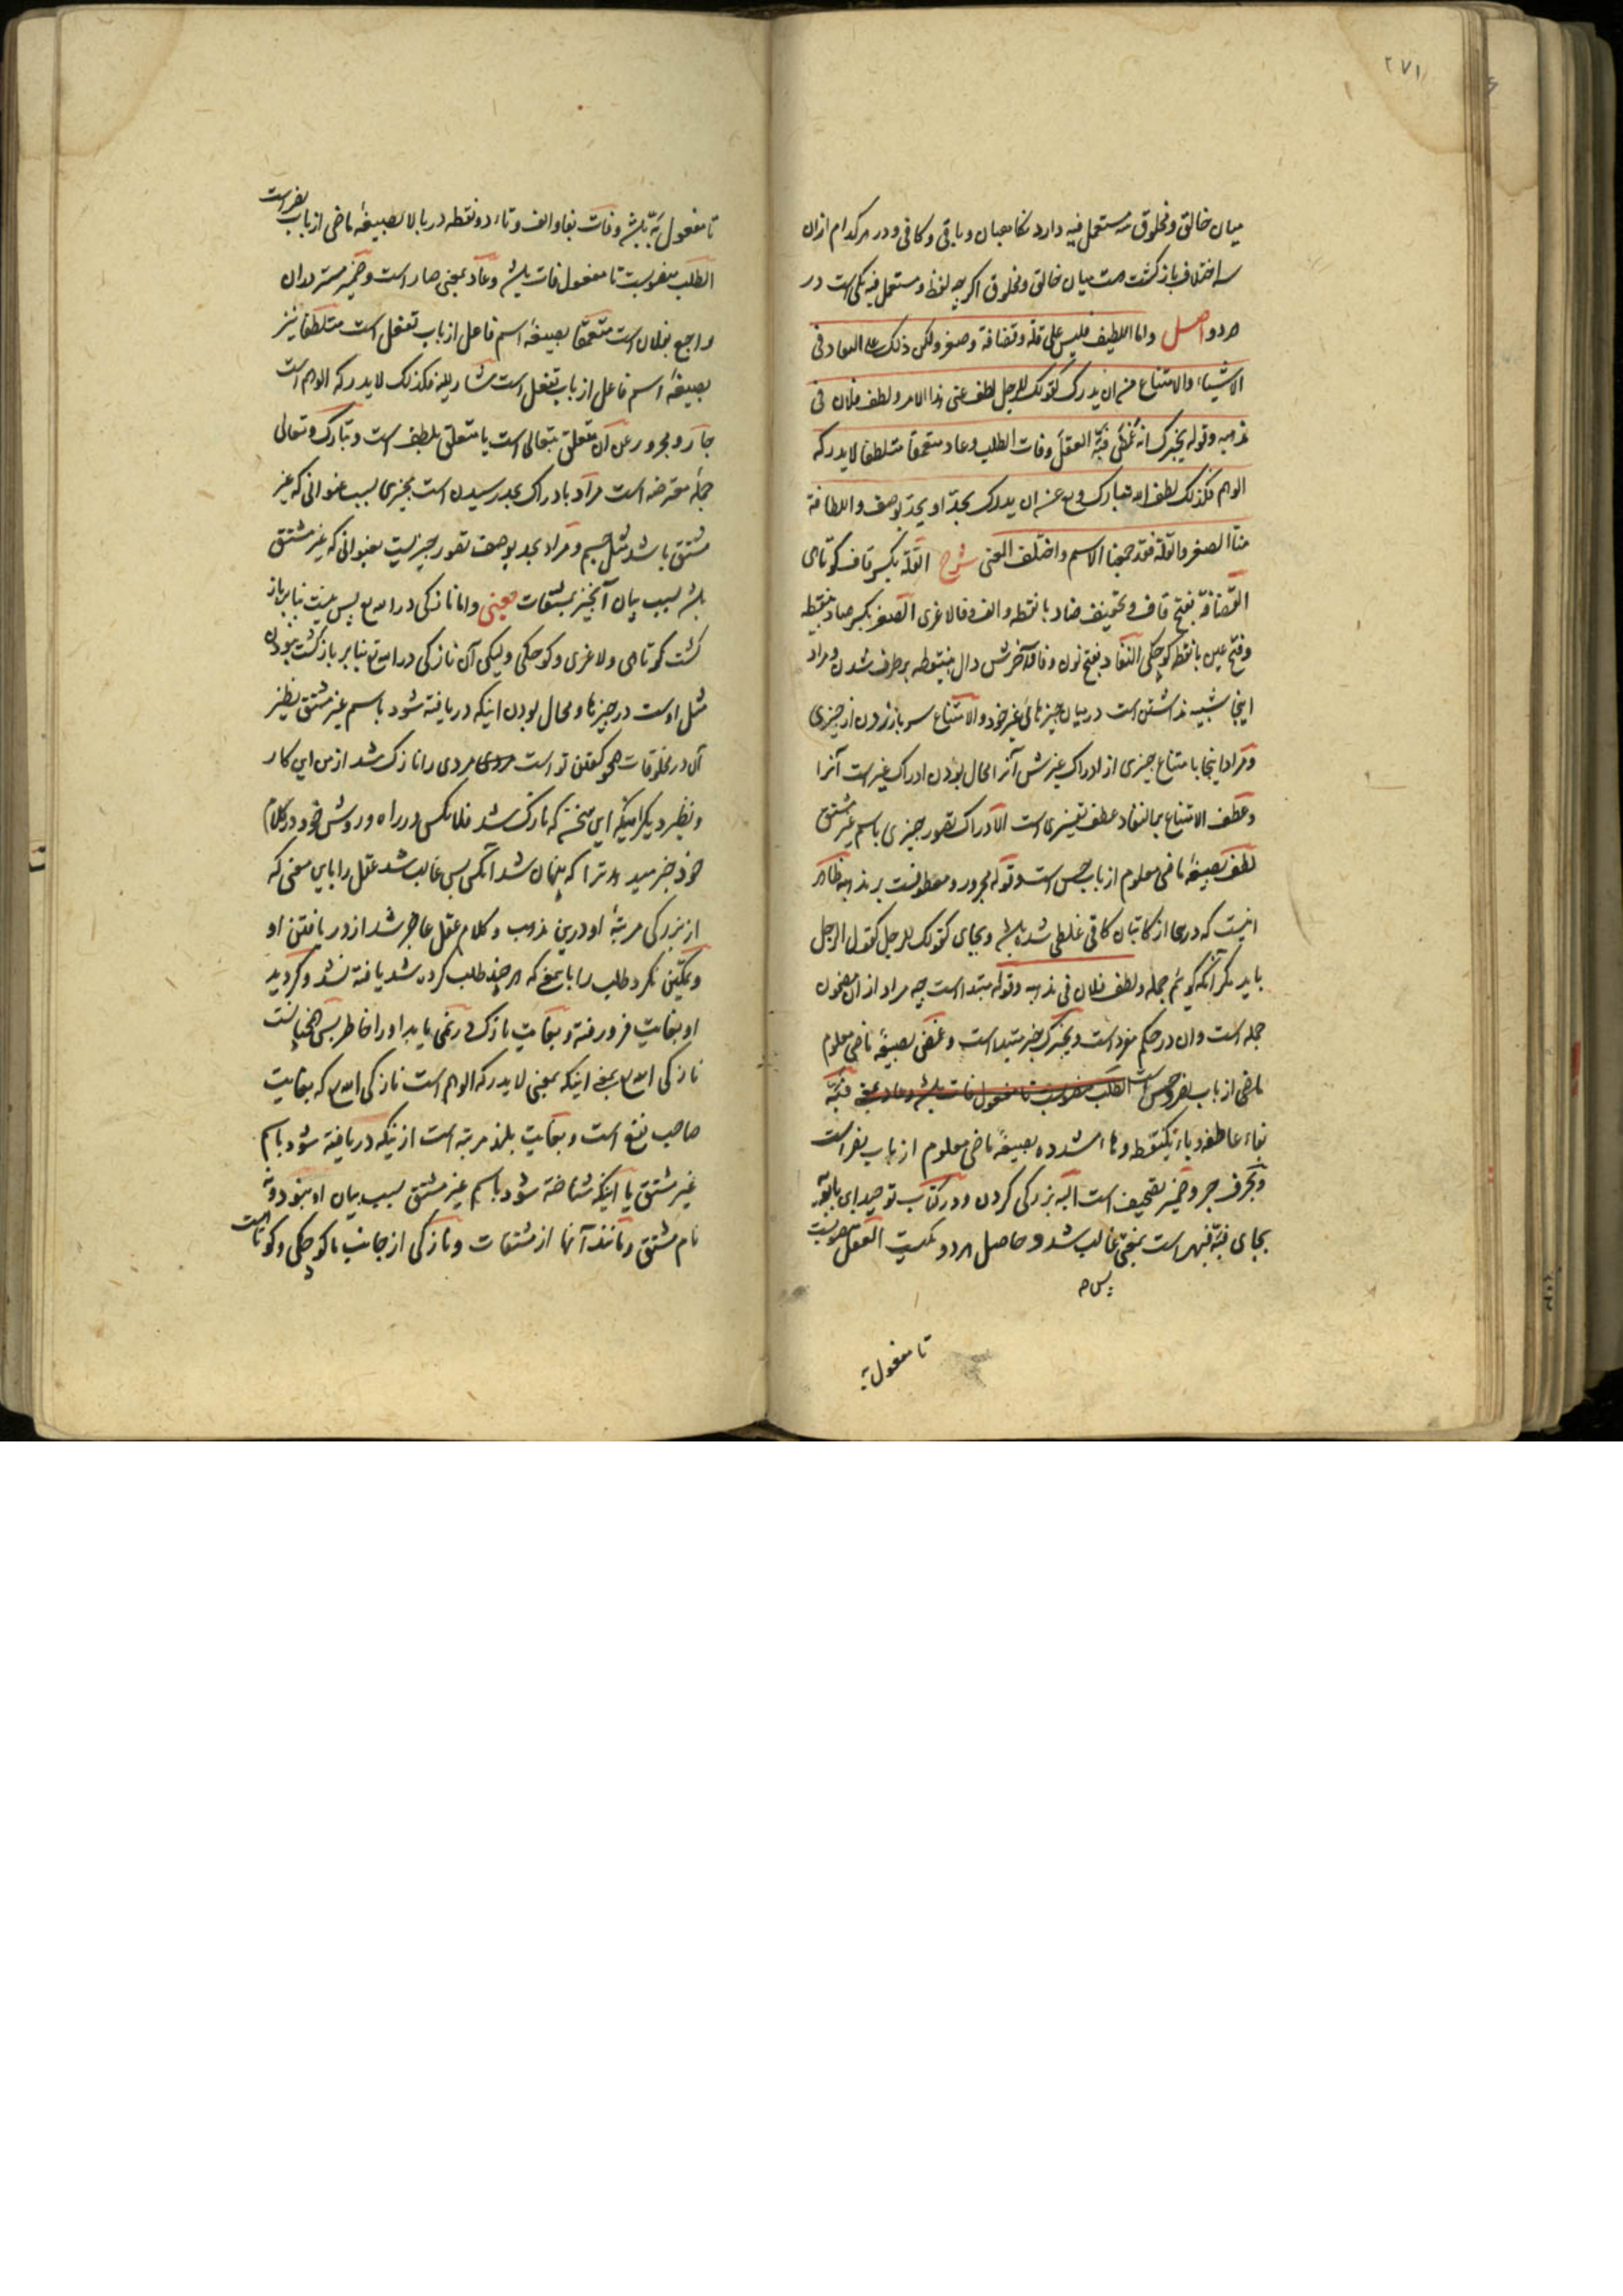 ۲۷۱
میان خالق و مخلوق سه مستعمل فیه دارد نکاهبان و باقی و کافی و در هر کدام ازان
سه اختلاف بازکشت هست میان خالق و مخلوق اکر چه لفظ و مستعمل فیه یکی است در
هر دو اصل واما اللطیف فلیس علی قلة وقضافة وصغر ولکن ذلک علی النفاد فی
الاشیاء والامتناع من ان یدرک کقولک للرجل لطف عنی هذا الامر ولطف فلان فی
مذهبه وقوله یخبرک انه غمض فبهّ العقل وفات الطلب وعاد متعمقا متلطفا لا یدرکه
الوهم فکذلک لطف الله تبارک وتع عن ان یدرک بحدّ او یحدّ بوصف واللطافة
منا الصغر والقلة فقد جمعنا الاسم واختلف المعنی شرح القلة بکسر قاف کوتاهی
القضافة بفتح قاف و تخفیف ضاد با نقطه والف وفا لاغری الصغر بکسر صاد بینقطه
وفتح غین با نقطه کوچکی النفاد بفتح نون وفا و آخرش دال بینقطه برطرف شدن و مراد
اینجا شبیه نداشتن است در میان چیزهائ غیر خود والامتناع سر باز زدن از چیزی
ومراد اینجا بامتناع چیزی از ادراک غیرش آنرا محال بودن ادراک غیرست آنرا
وعطف الامتناع بر النفاد عطف تفسیری است الادراک تصور چیزی باسم غیر مشتق
لطف بصیغهٔ ماضی معلوم از باب حسن است وقوله مجرور ومعطوفست بر مذهبه ظاهر
اینست که در ... از کاتبان کافی غلطی شده باشد و بجای کقولک للرجل کقول الرجل
باید مکر آنکه کوئیم جمله ولطف فلان فی مذهبه وقوله مبتداست چه مراد ازان مضمون
جمله است وان در حکم مفرد است ویخبرک خبر مبتداست وغمض بصیغهٔ ماضی معلوم
ماضی از باب نصر وحسن است الطلب منصوبست تا مفعول فات باشد وعاد بمعنی فبهّ
بفاء عاطفه و باء یکنقطه و هاء مشدده بصیغهٔ ماضی معلوم از باب نصر است
وبحرف جر وضمیر تصحیف است البه بزرکی کردن و در کتاب توحید ابن بابویه
بجای فبهّ فبهر است بمعنی غالب شد و حاصل هر دو یکیست العقل منصوبست
پس ه
تا مفعول به
تا مفعول بهّ باشد وفات بفا والف وتاء دو نقطه در بالا بصیغهٔ ماضی از باب نصر است
الطلب منصوبست تا مفعول فات باشد وعاد بمعنی صار است وضمیر مستتر دران
راجع بفلان است متعمقا بصیغهٔ اسم فاعل از باب تفعل است متلطفا نیز
بصیغهٔ اسم فاعل از باب تفعل است مشار الیه فکذلک لا یدرکه الوهم است
جار ومجرور عن ان متعلق بتعالی است یا متعلق بلطف است وتبارک وتعالی
جملهٔ معترضه است مراد بادراک بحد رسیدن است بچیزی بسبب عنوانی که غیر
مشتق باشد مثل جسم ومراد بحد بوصف تصور چیزیست بعنوانی که غیر مشتق
باشد بسبب بیان آنچیز بمشتقات یعنی واما نازکی در الله تع پس نیست بنا بر باز
کشت کوتاهی ولاغری وکوچکی ولیکن آن نازکی در الله تع بنا بر بازکشت نبودن
مثل اوست در چیزها ومحال بودن اینکه دریافته شود باسم غیر مشتق نظیر
آن در مخلوقات همچو کفتن تو است مردی را نازک شد از من این کار
ونظیر دیکر اینکه این سخن که نازک شد فلانکس در راه وروش خود ودر کلام
خود خبر میدهد ترا که پنهان شد آنکس پس غالب شد عقل را باین معنی که
از بزرکی مرتبهٔ او درین مذهب وکلام عقل عاجز شد از دریافتن او
وتمکین نکرد طلب را باینمعنی که هر چند طلب کرده شد یافته نشد وکردید
او بغایت فرو رفته وبغایت نازک در نمی یابد او را خاطر پس همچنانست
نازکی الله تع بمعنی اینکه بمعنی لا یدرکه الوهم است نازکی الله تع که بغایت
صاحب نفع است وبغایت بلند مرتبه است ازینکه دریافته شود باسم
غیر مشتق یا اینکه شناخته شود باسم غیر مشتق بسبب بیان او بنود ونه
نام مشتق ومانند آنها از مشتقات ونازکی از جانب ما کوچکی وکوتاهیست